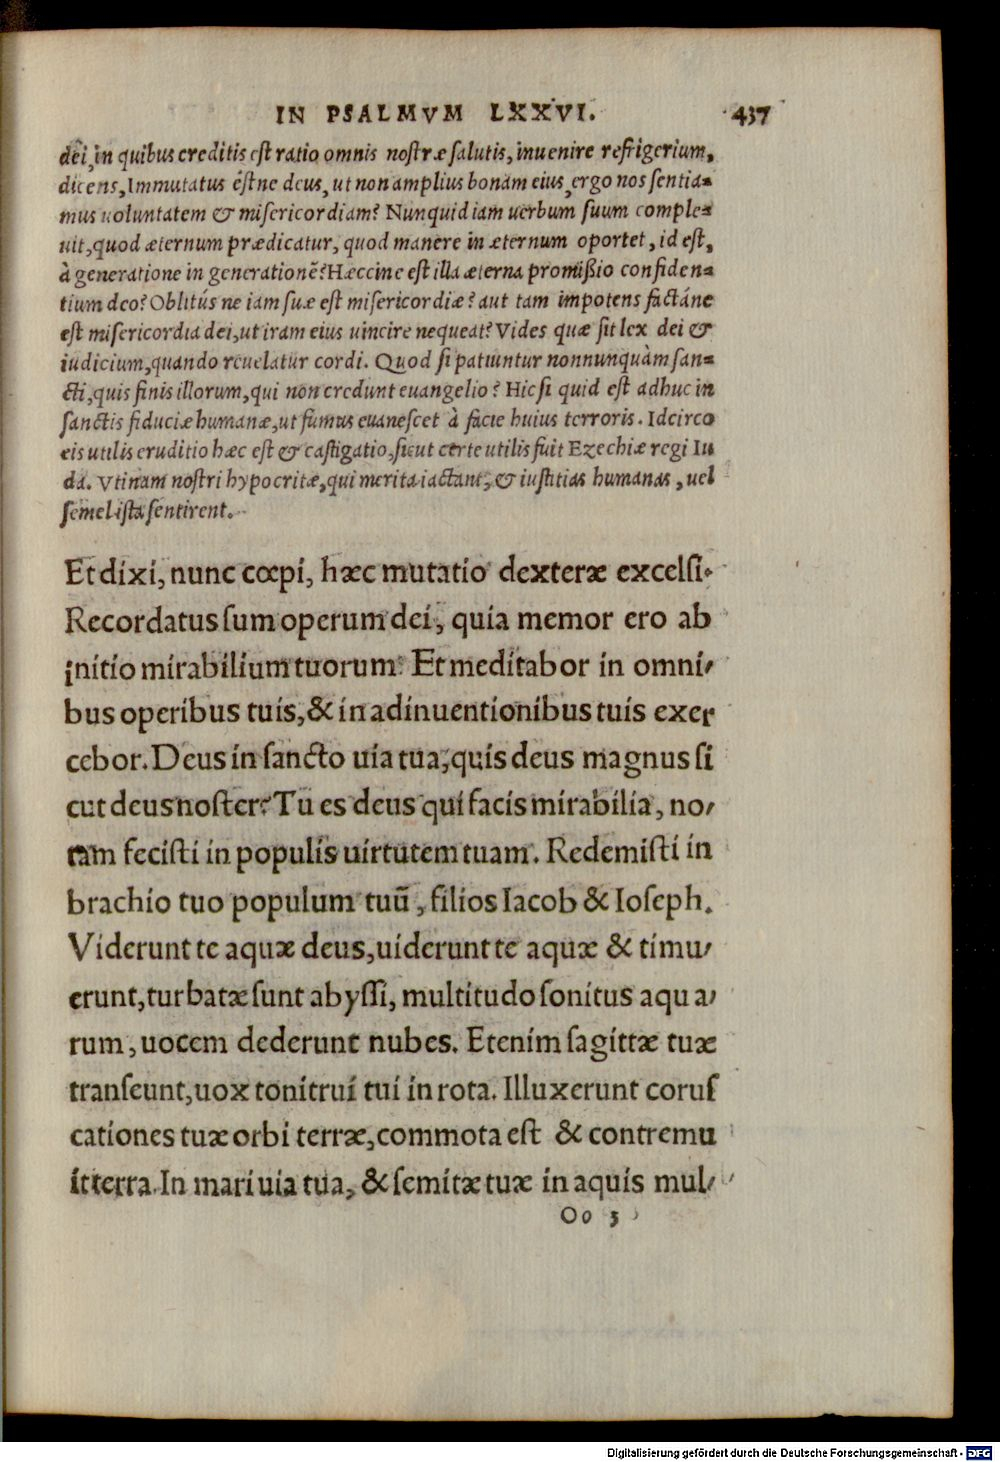 IN PSALMVM LXXVI. 437
dei, in quibus creditis est ratio omnis nostræ salutis, inuenire refrigerium,
dicens, Immutatus éstne deus, ut non amplius bonam eius, ergo nos sentia=
mus uoluntatem & misericordiam? Nunquid iam uerbum suum comple=
uit, quod æternum prædicatur, quod manere in æternum oportet, id est,
à generatione in generationẽ? Hæccine est illa æterna promißio confiden=
tium deo? Oblitús ne iam suæ est misericordiæ? aut tam impotens factáne
est misericordia dei, ut iram eius uincire nequeat? Vides quæ sit lex dei &
iudicium, quando reuelatur cordi. Quod si patiuntur nonnunquàm san=
cti, quis finis illorum, qui non credunt euangelio? Hic si quid est adhuc in
sanctis fiduciæ humanæ, ut fumus euanescet à facie huius terroris. Idcirco
eis utilis eruditio hæc est & castigatio, sicut certe utilis fuit Ezechiæ regi Iu
da. Vtinam nostri hypocritæ, qui merita iactant, & iustitias humanas, uel
semel ista sentirent.
Et dixi, nunc cœpi, hæc mutatio dexteræ excelsi.
Recordatus sum operum dei, quia memor ero ab
initio mirabilium tuorum. Et meditabor in omni/
bus operibus tuis, & in adinuentionibus tuis exer
cebor. Deus in sancto uia tua, quis deus magnus si
cut deus noster? Tu es deus qui facis mirabilia, no/
tam fecisti in populis uirtutem tuam. Redemisti in
brachio tuo populum tuũ, filios Iacob & Ioseph.
Viderunt te aquæ deus, uiderunt te aquæ & timu/
erunt, turbatæ sunt abyssi, multitudo sonitus aqua/
rum, uocem dederunt nubes. Etenim sagittæ tuæ
transeunt, uox tonitrui tui in rota. Illuxerunt corus
cationes tuæ orbi terræ, commota est & contremu
it terra. In mari uia tua, & semitæ tuæ in aquis mul/
Oo 3
Digitalisierung gefördert durch die Deutsche Forschungsgemeinschaft - DFG